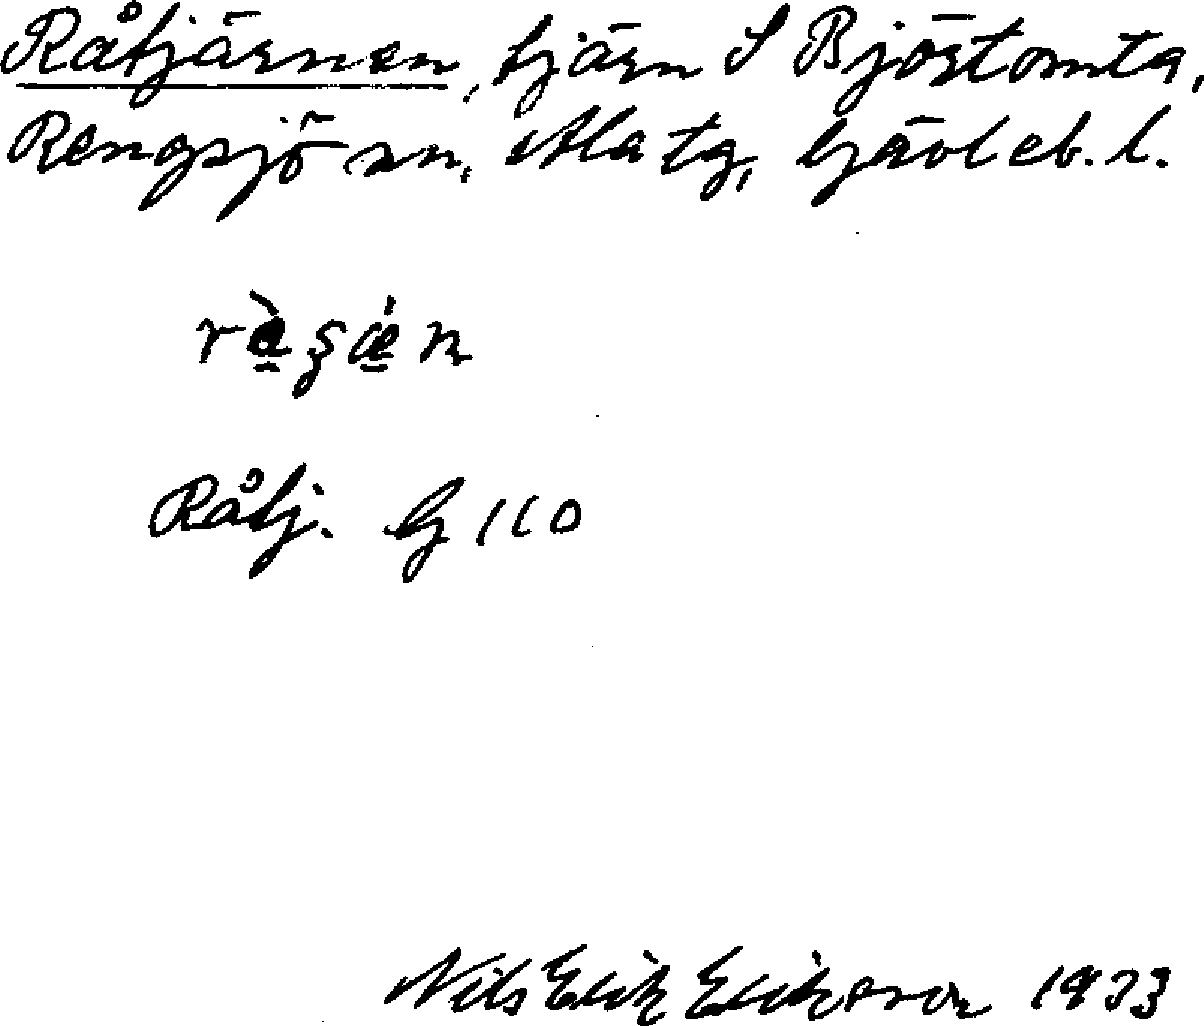 Råtjärnen, tjärn S Björtomta,
Rengsjö sn, Ala tg, Gävleb. l.
Råtj. G 110
Nils Erik Eriksson 1933